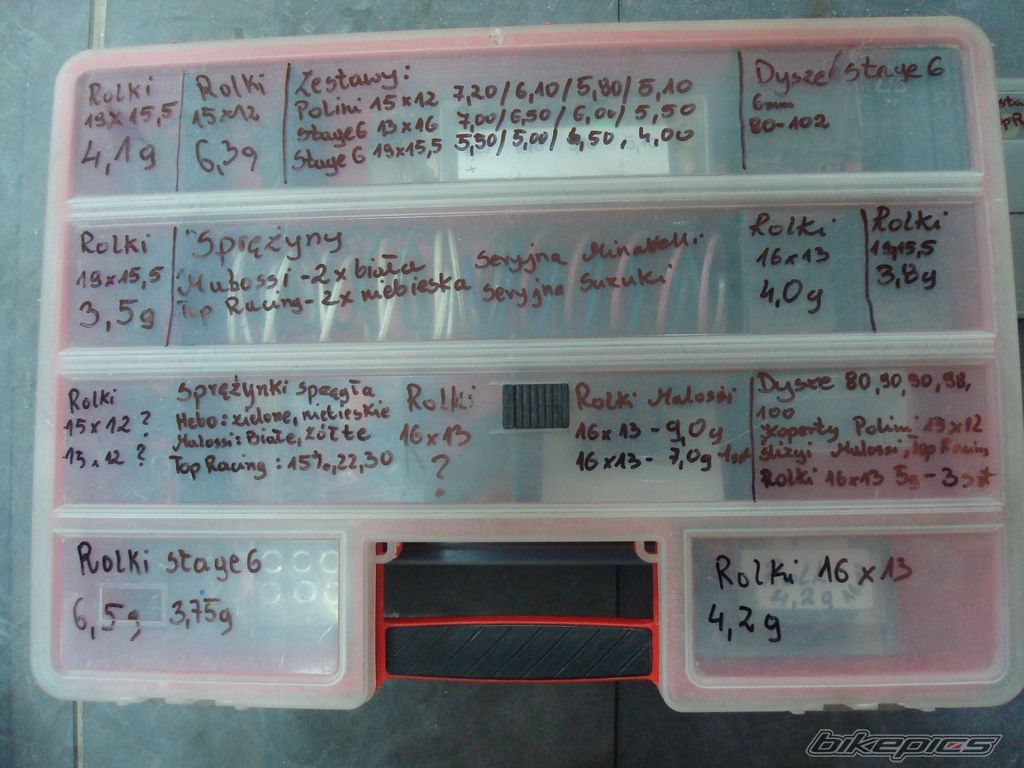 Rolki
19x15,5
4,1g
Rolki
15x12
6,3g
Zestawy:
Polini 15x12 7,20/6,10/5,80/5,10
Stage6 13x16 7,00/6,50/6,00/5,50
Stage 6 19x15,5 5,50/5,00/4,50, 4,00
Dysze Stage 6
6mm
80-102
Rolki
19x15,5
3,5g
Sprężyny
Malossi - 2x biała Seryjna Minarelli
Top Racing - 2x niebieska Seryjna Suzuki
Rolki
16x13
4,0g
Rolki
19x15,5
3,8g
Rolki
15x12 ?
13x12 ?
Sprężynki spzęgła
Hebo: zielone, niebieskie
Malossi: Białe, żółte
Top Racing: 15%, 22, 30
Rolki
16x13
?
Rolki Malossi
16x13 - 9,0g
16x13 - 7,0g
Dysze 80, 90, 90, 98,
100
Polini 13x12
ślizgi Malossi, Top Racing
Rolki 16x13 5g - 3szt
Rolki Stage6
6,5g 3,75g
Rolki 16x13
4,2g
4,2g
bikepics